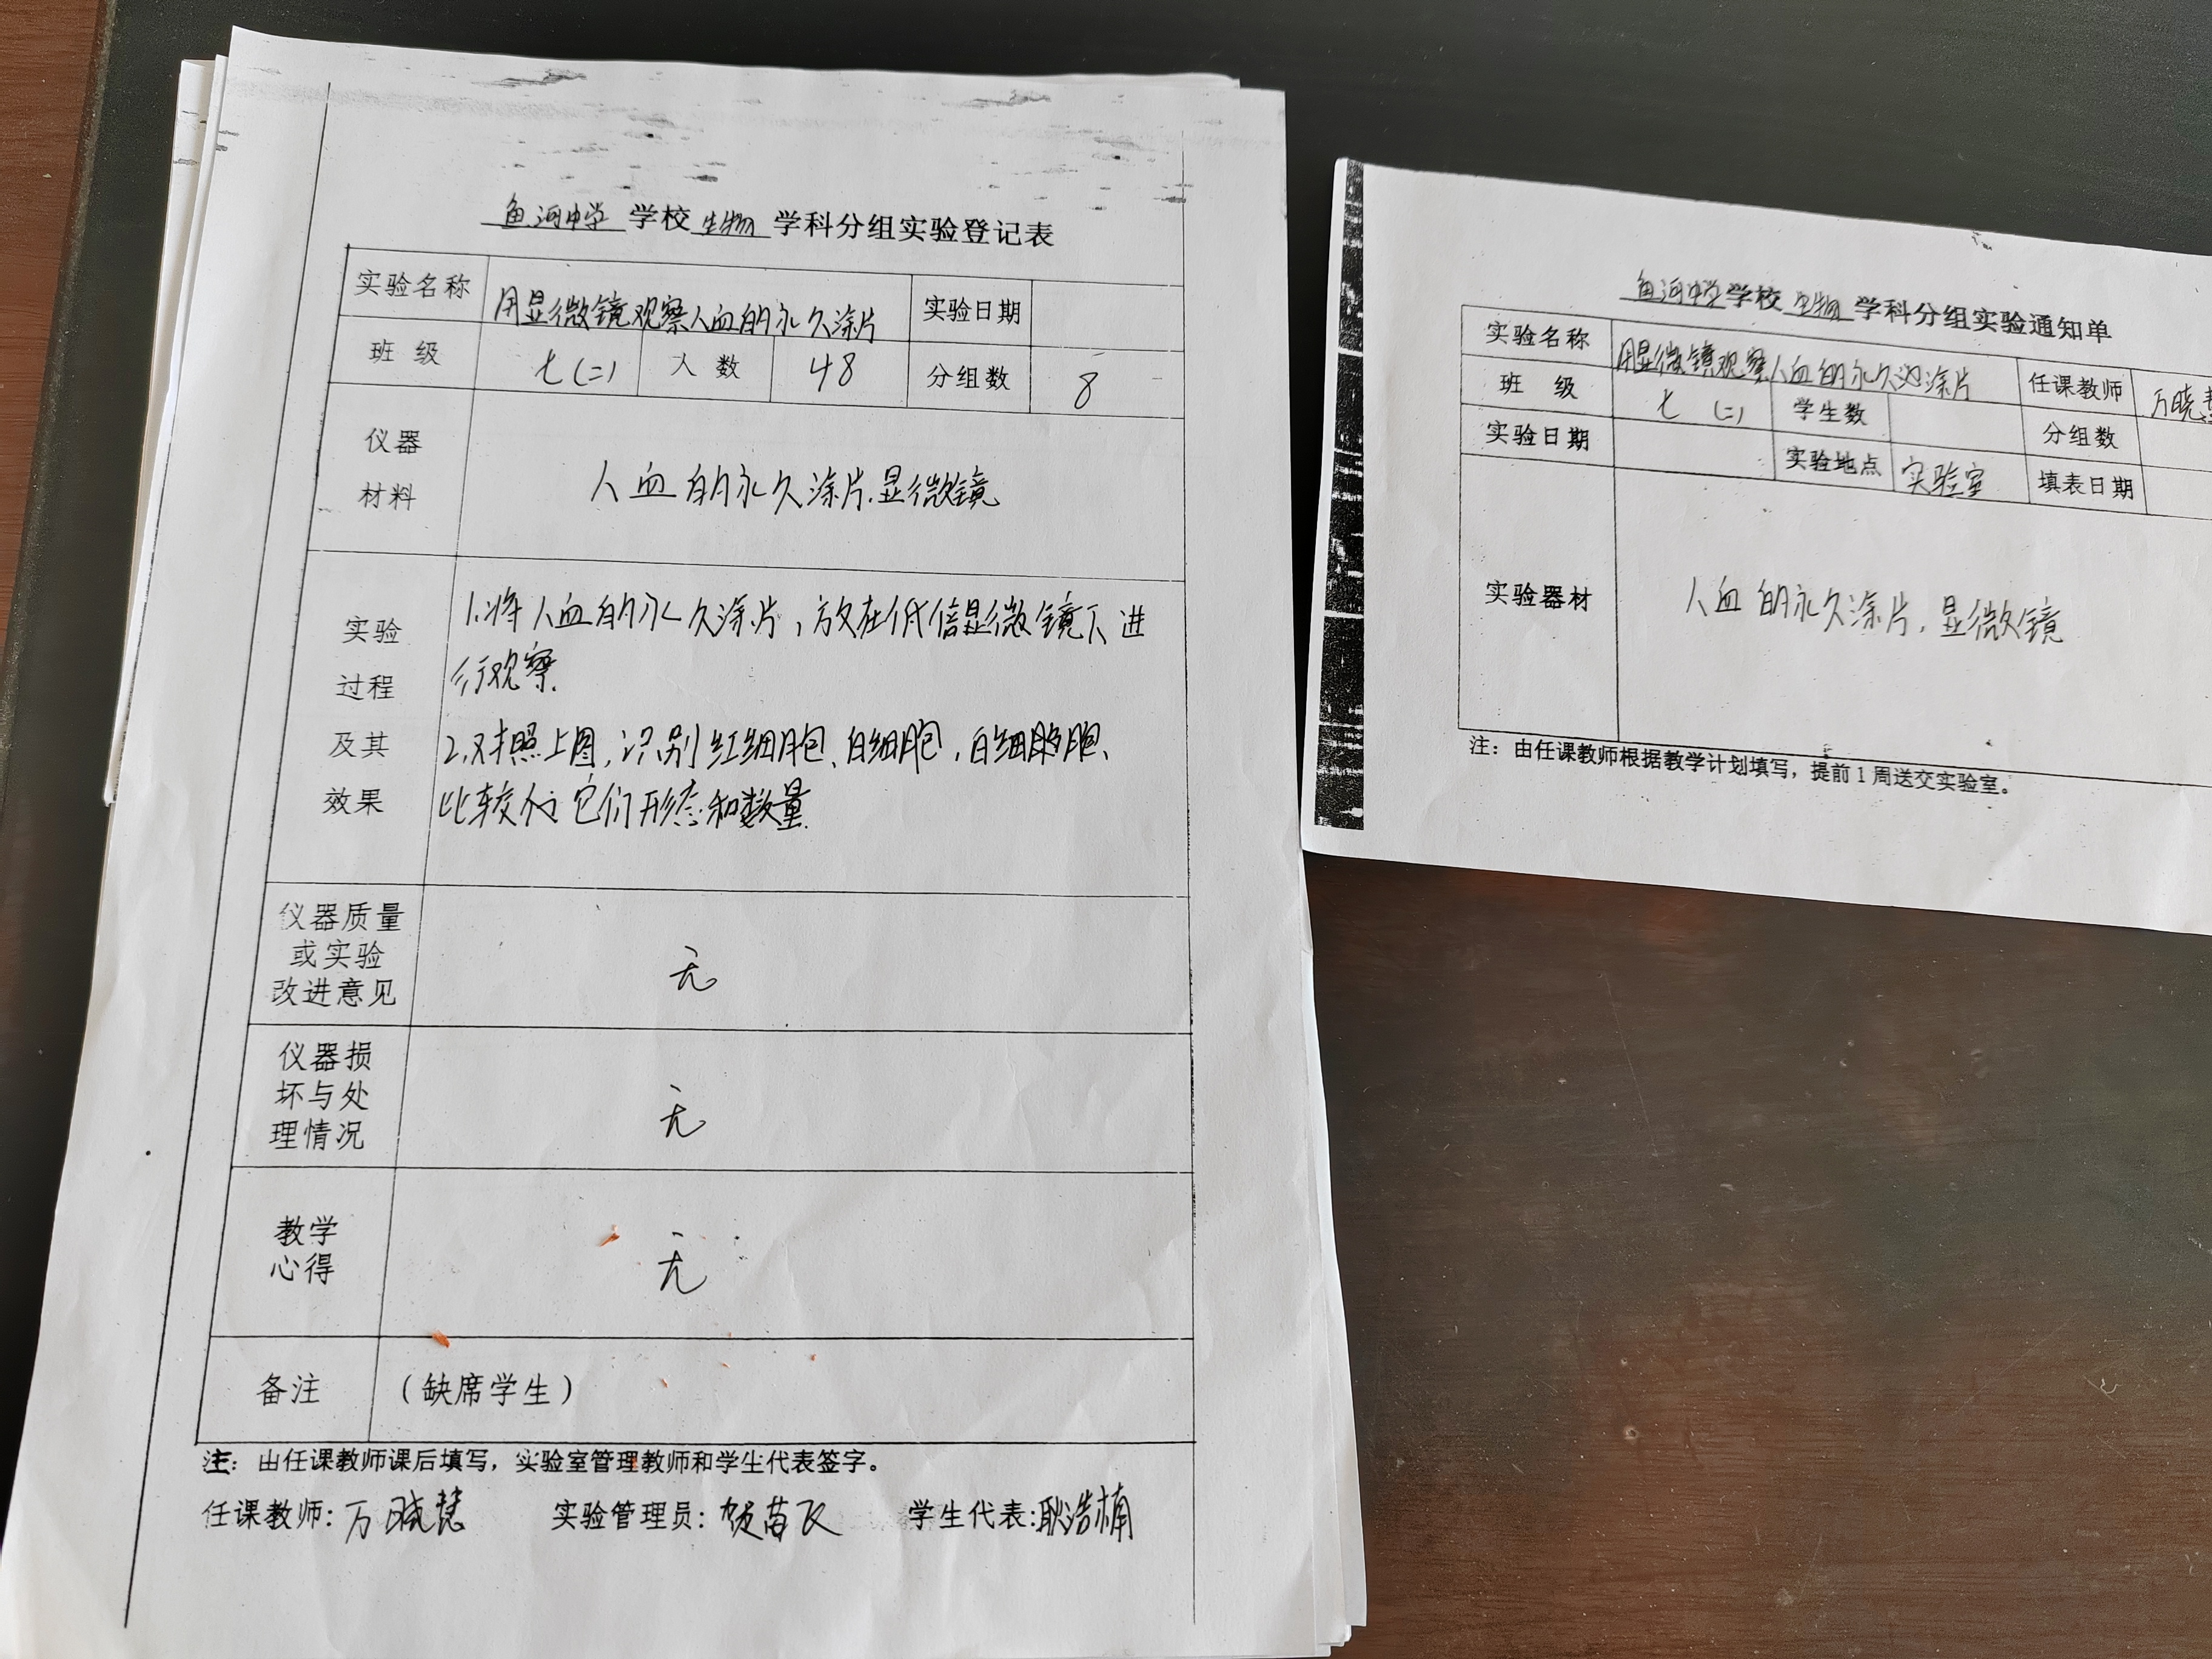 鱼河中学 学校 生物 学科分组实验登记表
实验名称 用显微镜观察人血的永久涂片 实验日期
班 级 七(二) 人 数 48 分组数 8
仪器
材料
人血的永久涂片.显微镜
实验
过程
及其
效果
1.将人血的永久涂片,放在低倍显微镜下进
行观察.
2.对照上图,识别红细胞、白细胞,白细胞、
比较 它们形态和数量.
仪器质量
或实验
改进意见
无
仪器损
坏与处
理情况
无
教学
心得
无
备注 (缺席学生)
注:由任课教师课后填写,实验室管理教师和学生代表签字。
任课教师:万晓慧 实验管理员:贺苗飞 学生代表:耿浩楠
鱼河中学 学校 生物 学科分组实验通知单
实验名称 用显微镜观察人血的永久 涂片 任课教师 万晓
班 级 七(二) 学生数 分组数
实验日期 实验地点 实验室 填表日期
实验器材 人血的永久涂片,显微镜
注:由任课教师根据教学计划填写,提前1周送交实验室。